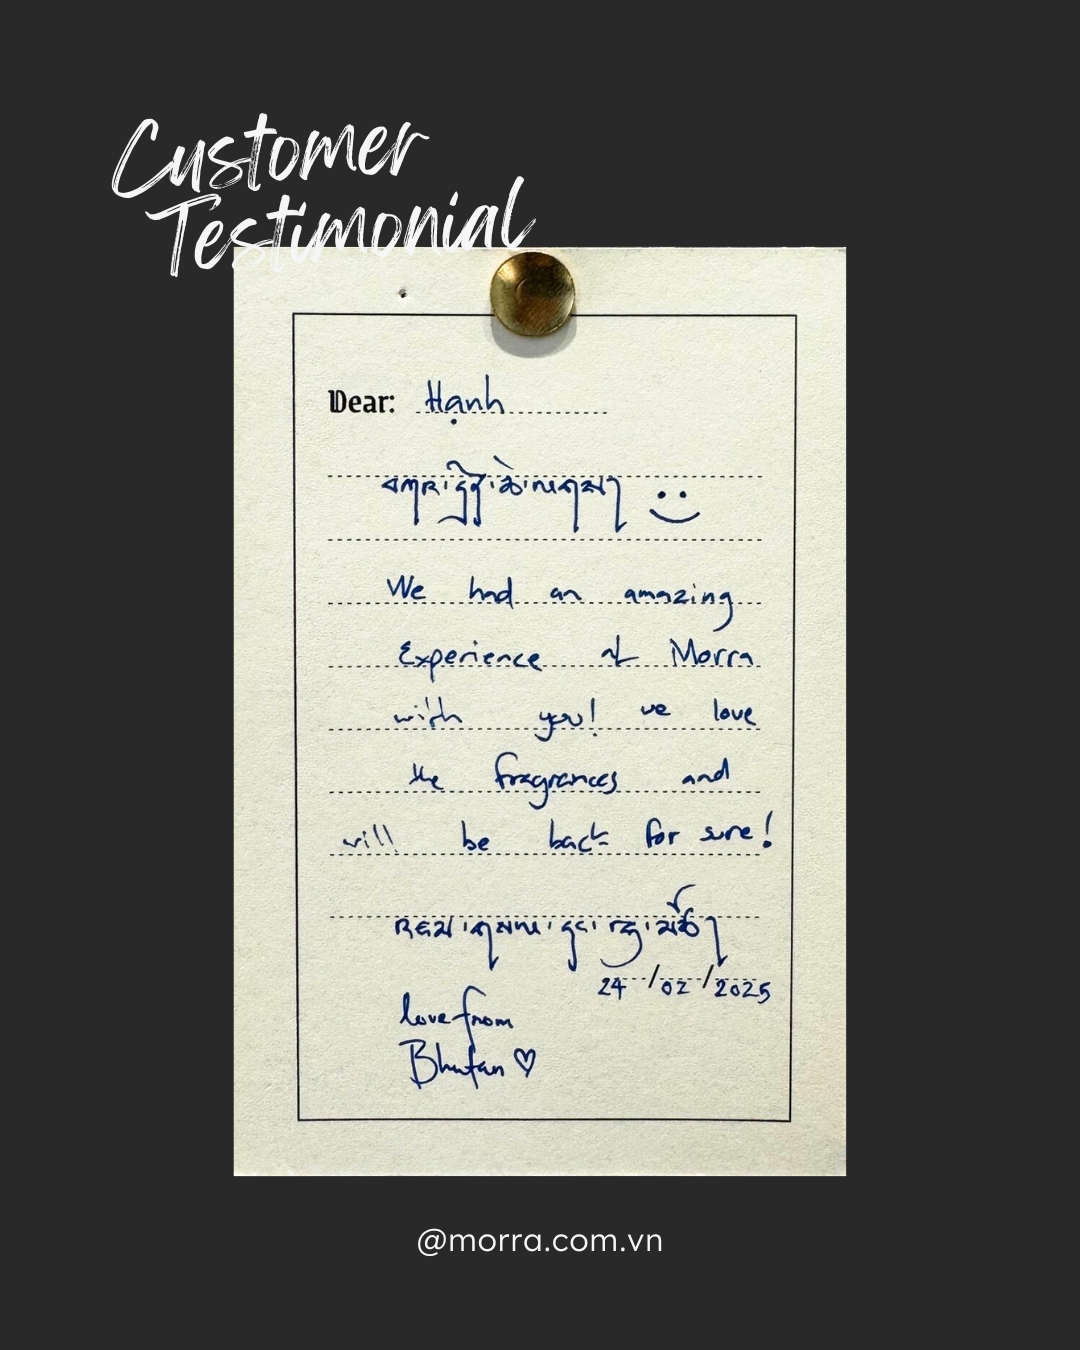 Customer
Testimonial
Dear: Hạnh
བཀའ་དྲིན་ཆེ་ལགས། :)
We had an amazing
Experience at Morra
with you! we love
the fragrances and
will be back for sure!
དང་རྒྱ་མཚོ།
24/02/2025
love from
Bhutan ♡
@morra.com.vn